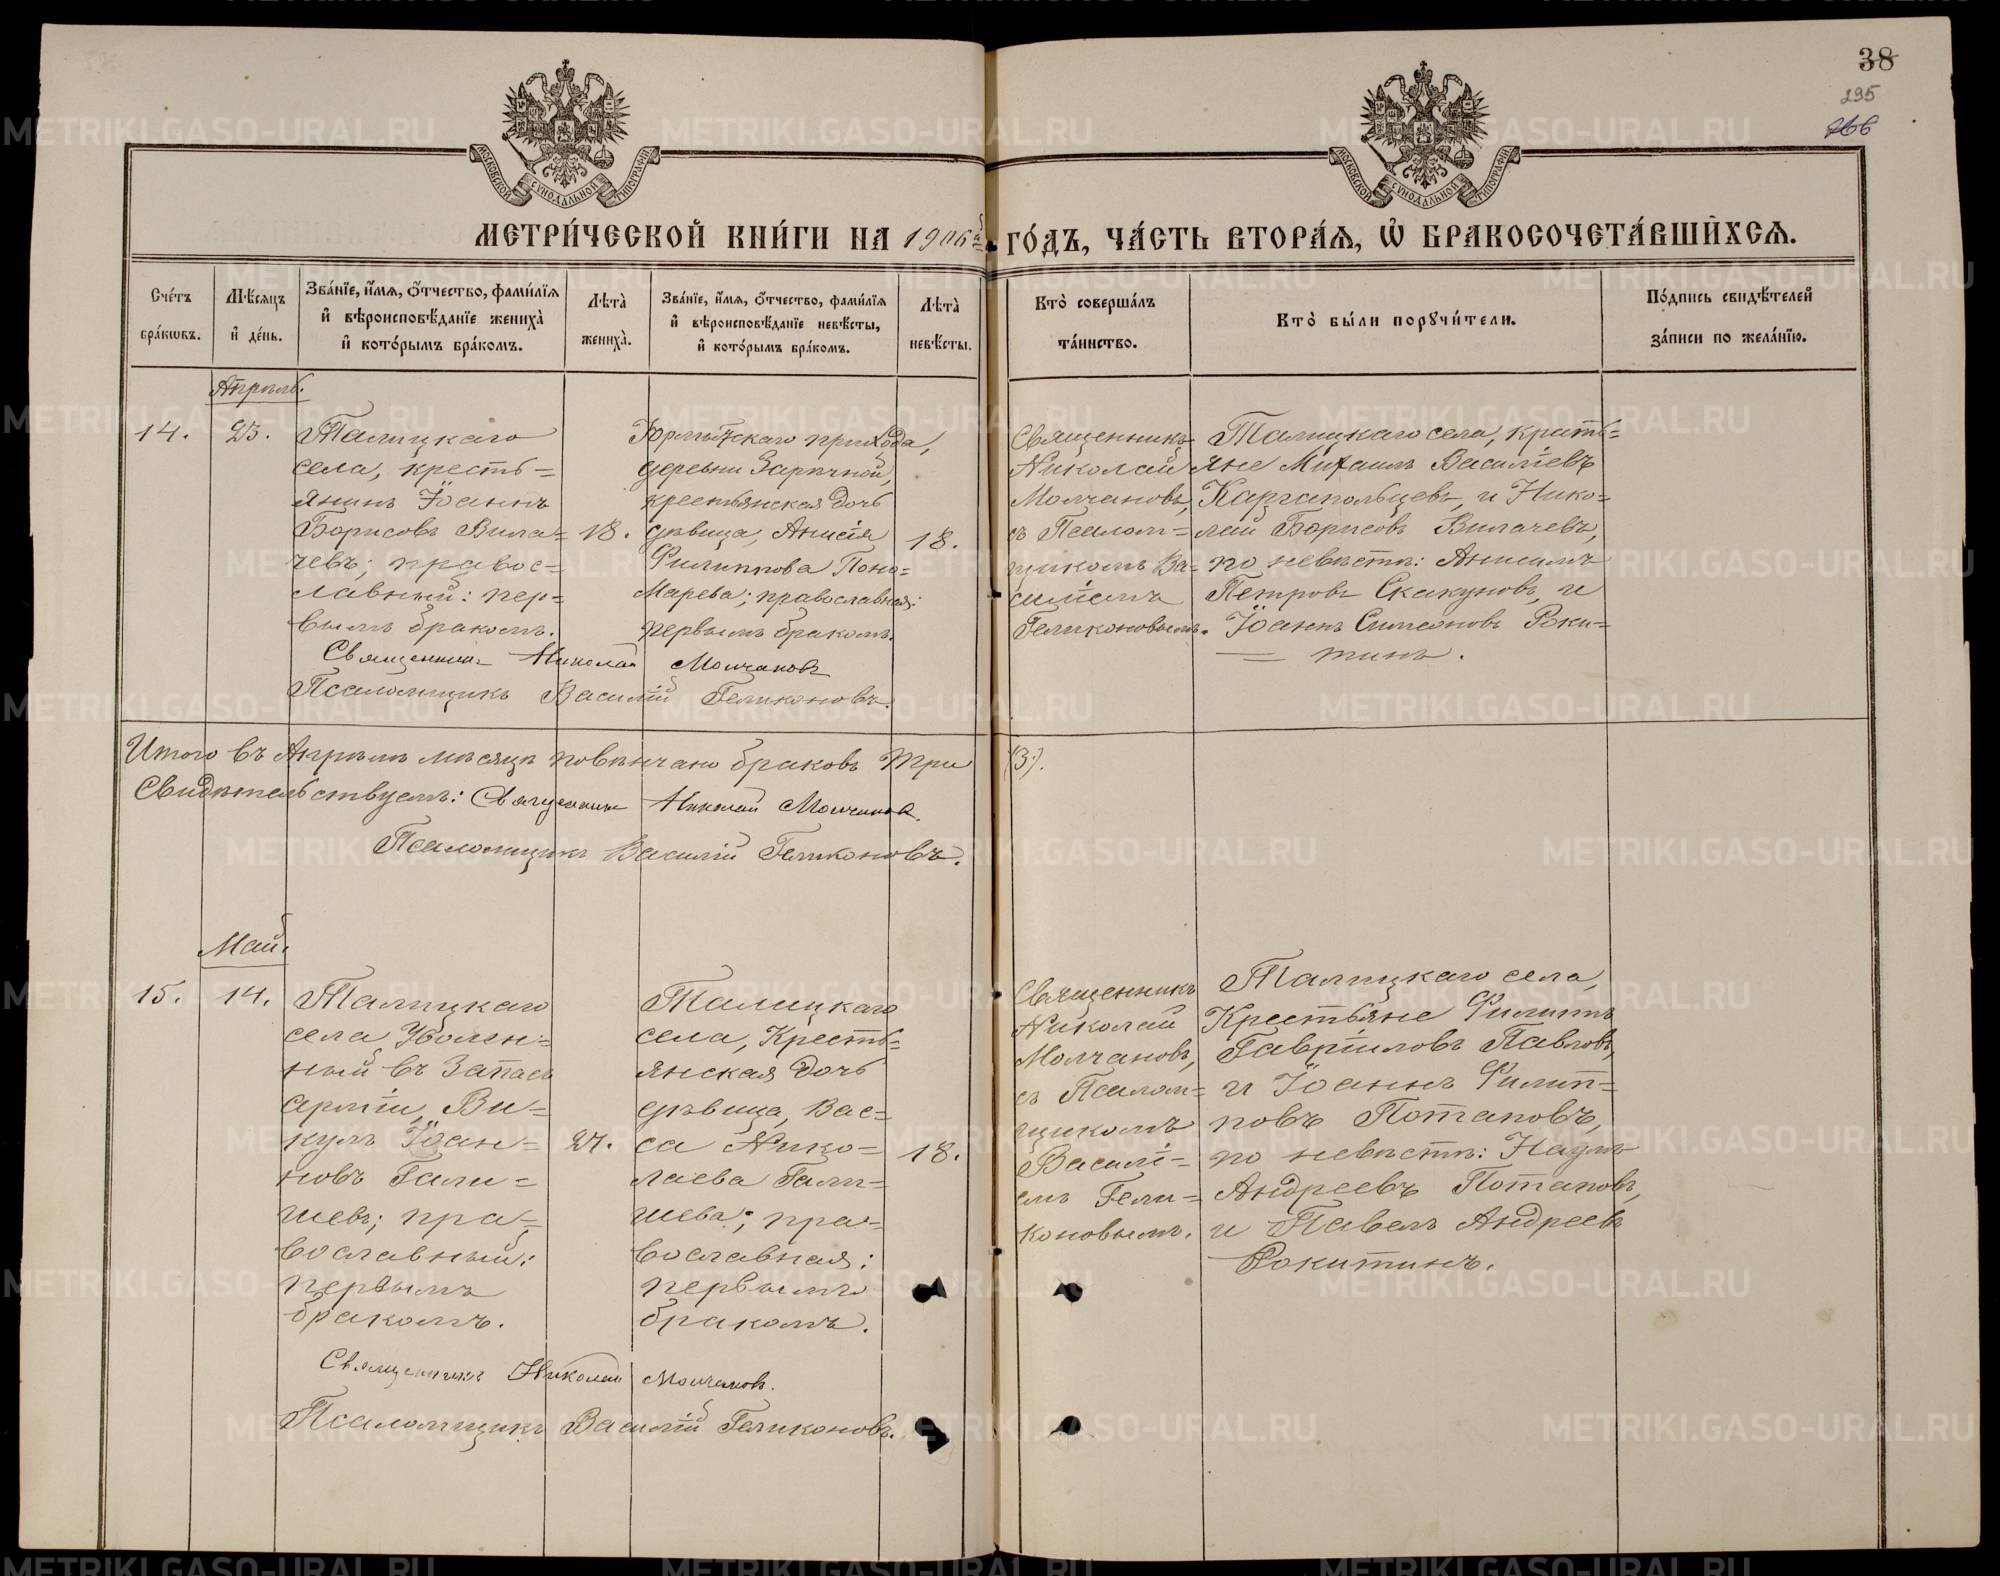 38
295
266
МОСКОВСКОЙ СѴНОДАЛЬНОЙ ТИПОГРАФІИ
МОСКОВСКОЙ СѴНОДАЛЬНОЙ ТИПОГРАФІИ
МЕТРИ́ЧЕСКОЙ КНИ́ГИ НА 1906й ГО́ДЪ, ЧА́СТЬ ВТОРА́Я, Ѡ҆ БРАКОСОЧЕТА́ВШИХСЯ.
Сче́тъ бра́кѡвъ.
Мѣ́сяцъ и҆ де́нь.
Зва́нїе, и҆́мя, ѻ҆́тчество, фами́лїя
и҆ вѣроисповѣ́данїе жениха̀
и҆ кото́рымъ бра́комъ.
Лѣта̀ жениха̀.
Зва́нїе, и҆́мя, ѻ҆́тчество, фами́лїя
и҆ вѣроисповѣ́данїе невѣ́сты,
и҆ кото́рымъ бра́комъ.
Лѣта̀ невѣ́сты.
Кто̀ соверша́лъ
та́инство.
Кто̀ бы́ли порꙋчи́тели.
По́дпись свидѣ́телей
за́писи по жела́нїю.
Апрѣль.
14.
23.
Талицкаго
села, кресть=
янинъ Іоаннъ
Борисовъ Вила=
чевъ; правос=
лавный: пер=
вымъ бракомъ.
18.
Юрмытскаго прихода,
деревни Заречной,
крестьянская дочь
дѣвица, Анисія
Филиппова Поно=
марева; православная:
первымъ бракомъ.
18.
Священникъ
Николай
Молчановъ,
съ Псалом=
щикомъ Ва=
силіемъ
Геликоновымъ.
Талицкаго села, кресть=
яне Михаилъ Василіевъ
Каргапольцевъ, и Нико=
лай Борисовъ Вилачевъ,
по невѣстѣ: Анисимъ
Петровъ Скакуновъ, и
Іоаннъ Симеоновъ Роки=
тинъ.
Священникъ Николай Молчановъ
Псаломщикъ Василій Геликоновъ.
Итого въ Апрѣлѣ мѣсяцѣ повѣнчано браковъ три (3.).
Свидѣтельствуемъ: Священникъ Николай Молчановъ.
Псаломщикъ Василій Геликоновъ.
Май.
15.
14.
Талицкаго
села Уволен=
ный въ Запасъ
арміи, Ви=
кулъ Іоан=
новъ Гали=
шевъ; пра=
вославный:
первымъ
бракомъ.
27.
Талицкаго
села, Кресть=
янская дочь
дѣвица, Вас=
са Нико=
лаева Гали=
шева; пра=
вославная:
первымъ
бракомъ.
18.
Священникъ
Николай
Молчановъ,
съ Псалом=
щикомъ
Василі=
емъ Гели=
коновымъ.
Талицкаго села,
Крестьяне Филиппъ
Гавріиловъ Павловъ,
и Іоаннъ Филип=
повъ Потаповъ,
по невѣстѣ: Наумъ
Андреевъ Потаповъ,
и Павелъ Андреевъ
Рокитинъ.
Священникъ Николай Молчановъ.
Псаломщикъ Василій Геликоновъ.